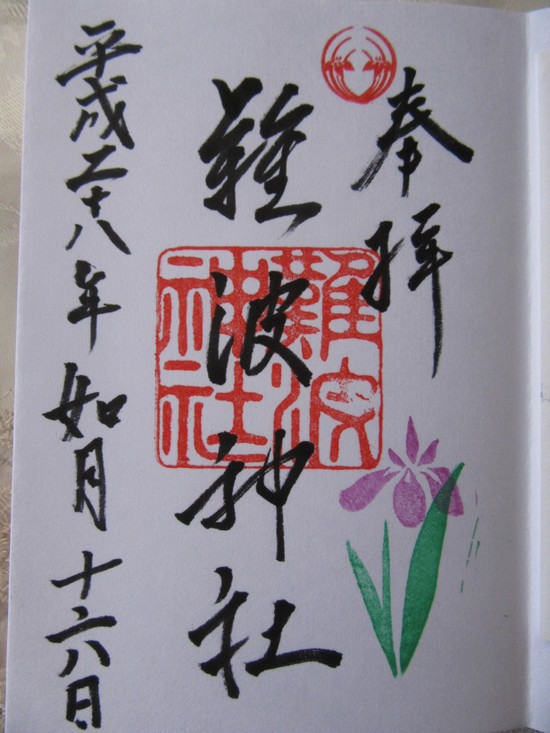 奉拝
難波神社
難波
神社
平成二十八年如月十六日